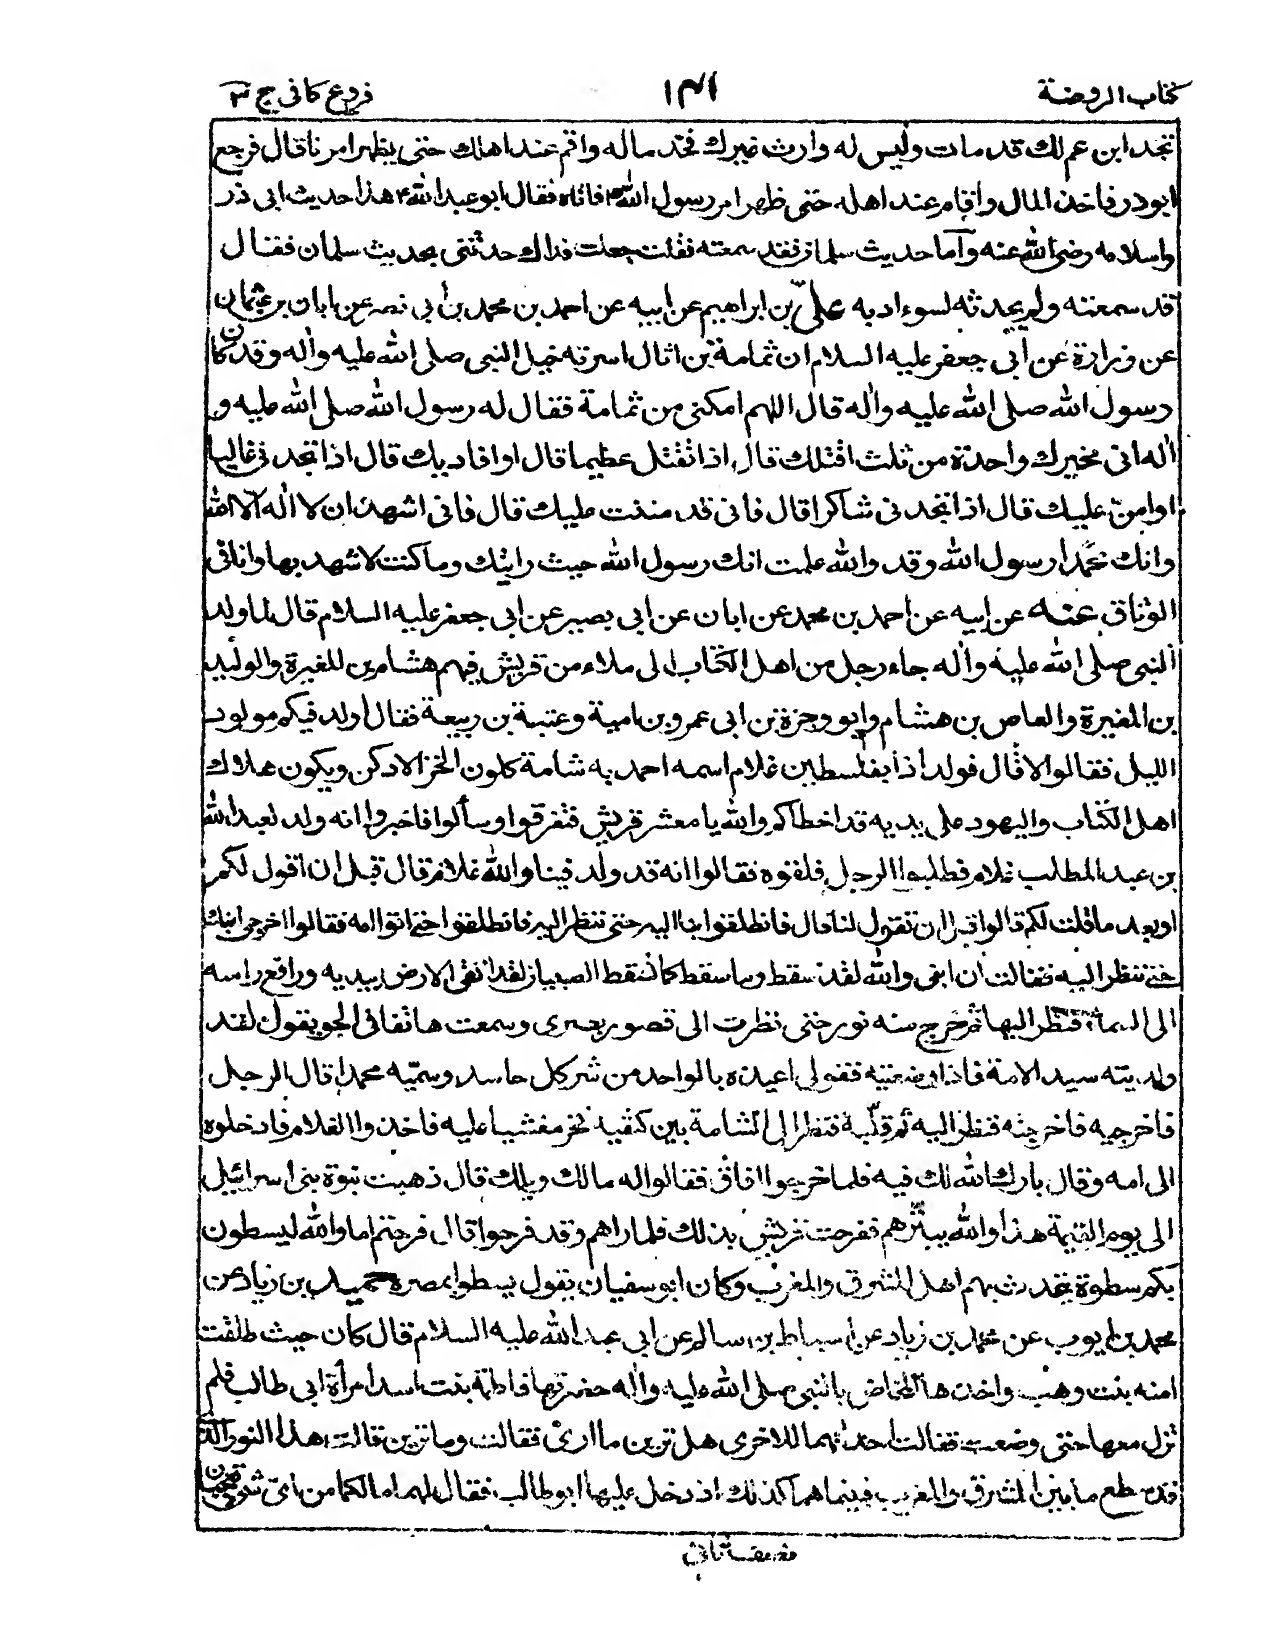 كتاب الروضة
١٤١
فروع كافي ج ٣
تجد ابن عم لك قد مات وليس له وارث غيرك فخذ ماله واقم عند اهلك حتى يظهر امرنا قال فرجع
ابوذر فاخذ المال واقام عند اهله حتى ظهر امر رسول الله ص فاتاه فقال ابو عبد الله ع هذا حديث ابى ذر
واسلامه رضى الله عنه وأما حديث سلمان فقد سمعته فقلت جعلت فداك حدثنى بحديث سلمان فقال
قد سمعته ولم يحدثه لسوء ادبه علىّ بن ابراهيم عن ابيه عن احمد بن محمد بن أبى نصر عن ابان بن عثمان
عن زرارة عن أبى جعفر عليه السلام ان ثمامة بن اثال اسرته خيل النبى صلى الله عليه واله وقد كان
رسول الله صلى الله عليه واله قال اللهم امكنى من ثمامة فقال له رسول الله صلى الله عليه و
اله انى مخيرك واحدة من ثلث اقتلك قال اذا تقتل عظيما قال او افاديك قال اذا تجدنى غاليا
او امنّ عليك قال اذا تجدنى شاكرا قال فانى قد مننت عليك قال فانى اشهد ان لا اله الا الله
وانك محمدا رسول الله وقد والله علمت انك رسول الله حيث رايتك وما كنت لاشهد بها وانا فى
الوثاق عنه عن ابيه عن احمد بن محمد عن ابان عن ابى بصير عن ابى جعفر عليه السلام قال لما ولد
النبى صلى الله عليه واله جاء رجل من اهل الكتاب الى ملاء من قريش فيهم هشام بن المغيرة والوليد
بن المغيرة والعاص بن هشام وابو وجزة بن ابى عمرو بن امية وعتبة بن ربيعة فقال اولد فيكم مولود
الليل فقالوا لا قال فولد اذا بفلسطين غلام اسمه احمد به شامة كلون الخز الادكن ويكون هلاك
اهل الكتاب واليهود على يديه قد اخطاكم والله يا معشر قريش فتفرقوا وسألوا فاخبروا انه ولد لعبد الله
بن عبد المطلب غلام فطلبوا الرجل فلقوه فقالوا انه قد ولد فينا والله غلام قال قبل ان اقول لكم
او بعد ما قلت لكم قالوا قبل ان تقول لنا قال فانطلقوا بنا اليه حتى ننظر اليه فانطلقوا حتى اتوا امه فقالوا اخرجى ابنك
حتى ننظر اليه فقالت ان ابنى والله لقد سقط وما سقط كما تسقط الصبيان لقد اتقى الارض بيديه ورافع راسه
الى السماء فنظر اليها ثم خرج منه نور حتى نظرت الى قصور بصرى وسمعت هاتفا فى الجو يقول لقد
ولدتيه سيد الامة فاذا وضعتيه فقولى اعيذه بالواحد من شر كل حاسد وسمّيه محمدا قال الرجل
فاخرجيه فاخرجته فنظر اليه ثم قلّبه فنظر الى الشامة بين كتفيه فخر مغشيا عليه فاخذوا الغلام فادخلوه
الى امه وقال بارك الله لك فيه فلما خرجوا افاق فقالوا له مالك ويلك قال ذهبت نبوة بنى اسرائيل
الى يوم القيمة هذا والله يبيرهم ففرحت قريش بذلك فلما راهم وقد فرحوا قال فرحتم اما والله ليسطون
بكم سطوة يتحدث بهم اهل المشرق والمغرب وكان ابو سفيان يقول يسطو بمصره حميد بن زياد عن
محمد بن ايوب عن محمد بن زياد عن اسباط بن سالم عن ابى عبد الله عليه السلام قال كان حيث طلقت
امنه بنت وهب واخذها المخاض بالنبى صلى الله عليه واله حضرتها فاطمة بنت اسد امرأة ابى طالب فلم
تزل معها حتى وضعت فقالت احداهما للاخرى هل ترين ما ارى فقالت وما ترين قالت هذا النور الذى
قد سطع ما بين المشرق والمغرب فبينما هما كذلك اذ دخل عليهما ابو طالب فقال لهما ما لكما من اىّ شئ تعجبان